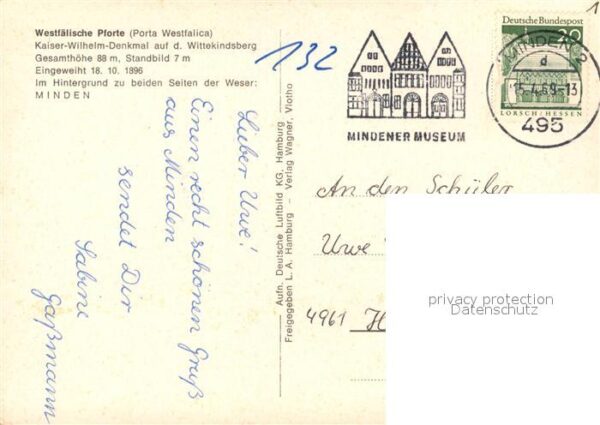 Westfälische Pforte (Porta Westfalica)
Kaiser-Wilhelm-Denkmal auf d. Wittekindsberg
Gesamthöhe 88 m, Standbild 7 m
Eingeweiht 18. 10. 1896
Im Hintergrund zu beiden Seiten der Weser:
MINDEN
132
Lieber Uwe!
Einen recht schönen Gruß
aus Minden
sendet Dir
Sabine
Gaßmann
Aufn. Deutsche Luftbild KG, Hamburg
Freigegeben L. A. Hamburg – Verlag Wagner, Vlotho
MINDENER MUSEUM
Deutsche Bundespost
LORSCH/HESSEN
MINDEN 2
d
15.4.69-13
495
1
An den Schüler
Uwe
4961 H
privacy protection
Datenschutz